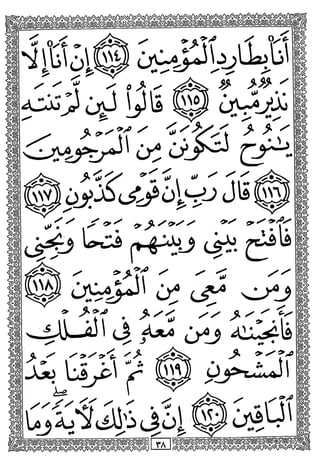 أَنَا۠ بِطَارِدِ ٱلۡمُؤۡمِنِينَ ١١٤ إِنۡ أَنَا۠ إِلَّا
نَذِيرٞ مُّبِينٞ ١١٥ قَالُواْ لَئِن لَّمۡ تَنتَهِ
يَٰنُوحُ لَتَكُونَنَّ مِنَ ٱلۡمَرۡجُومِينَ
١١٦ قَالَ رَبِّ إِنَّ قَوۡمِي كَذَّبُونِ ١١٧
فَٱفۡتَحۡ بَيۡنِي وَبَيۡنَهُمۡ فَتۡحٗا وَنَجِّنِي
وَمَن مَّعِيَ مِنَ ٱلۡمُؤۡمِنِينَ ١١٨
فَأَنجَيۡنَٰهُ وَمَن مَّعَهُۥ فِي ٱلۡفُلۡكِ
ٱلۡمَشۡحُونِ ١١٩ ثُمَّ أَغۡرَقۡنَا بَعۡدُ
ٱلۡبَاقِينَ ١٢٠ إِنَّ فِي ذَٰلِكَ لَأٓيَةٗۖ وَمَا
٣٨